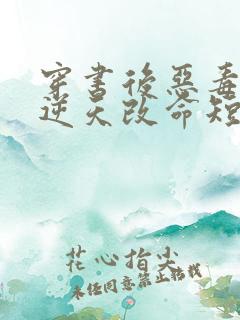 穿书後恶毒
逆天改命短
花心指尖
未经同意禁止转载